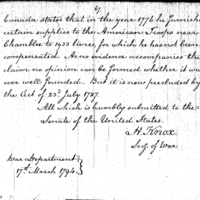 Canada states that in the year 1776 he furnished
certain supplies to the American Troops near
Chamblee to 1933 livres, for which he has not been
compensated. As no evidence accompanies the
claim no opinion can be formed whether it was
ever well founded. But it is now precluded by
the Act of 23d. July 1787.
All which is humbly submitted to the
Senate of the United States.
H. Knox
Secy. of War
War Department
17th March 1794.